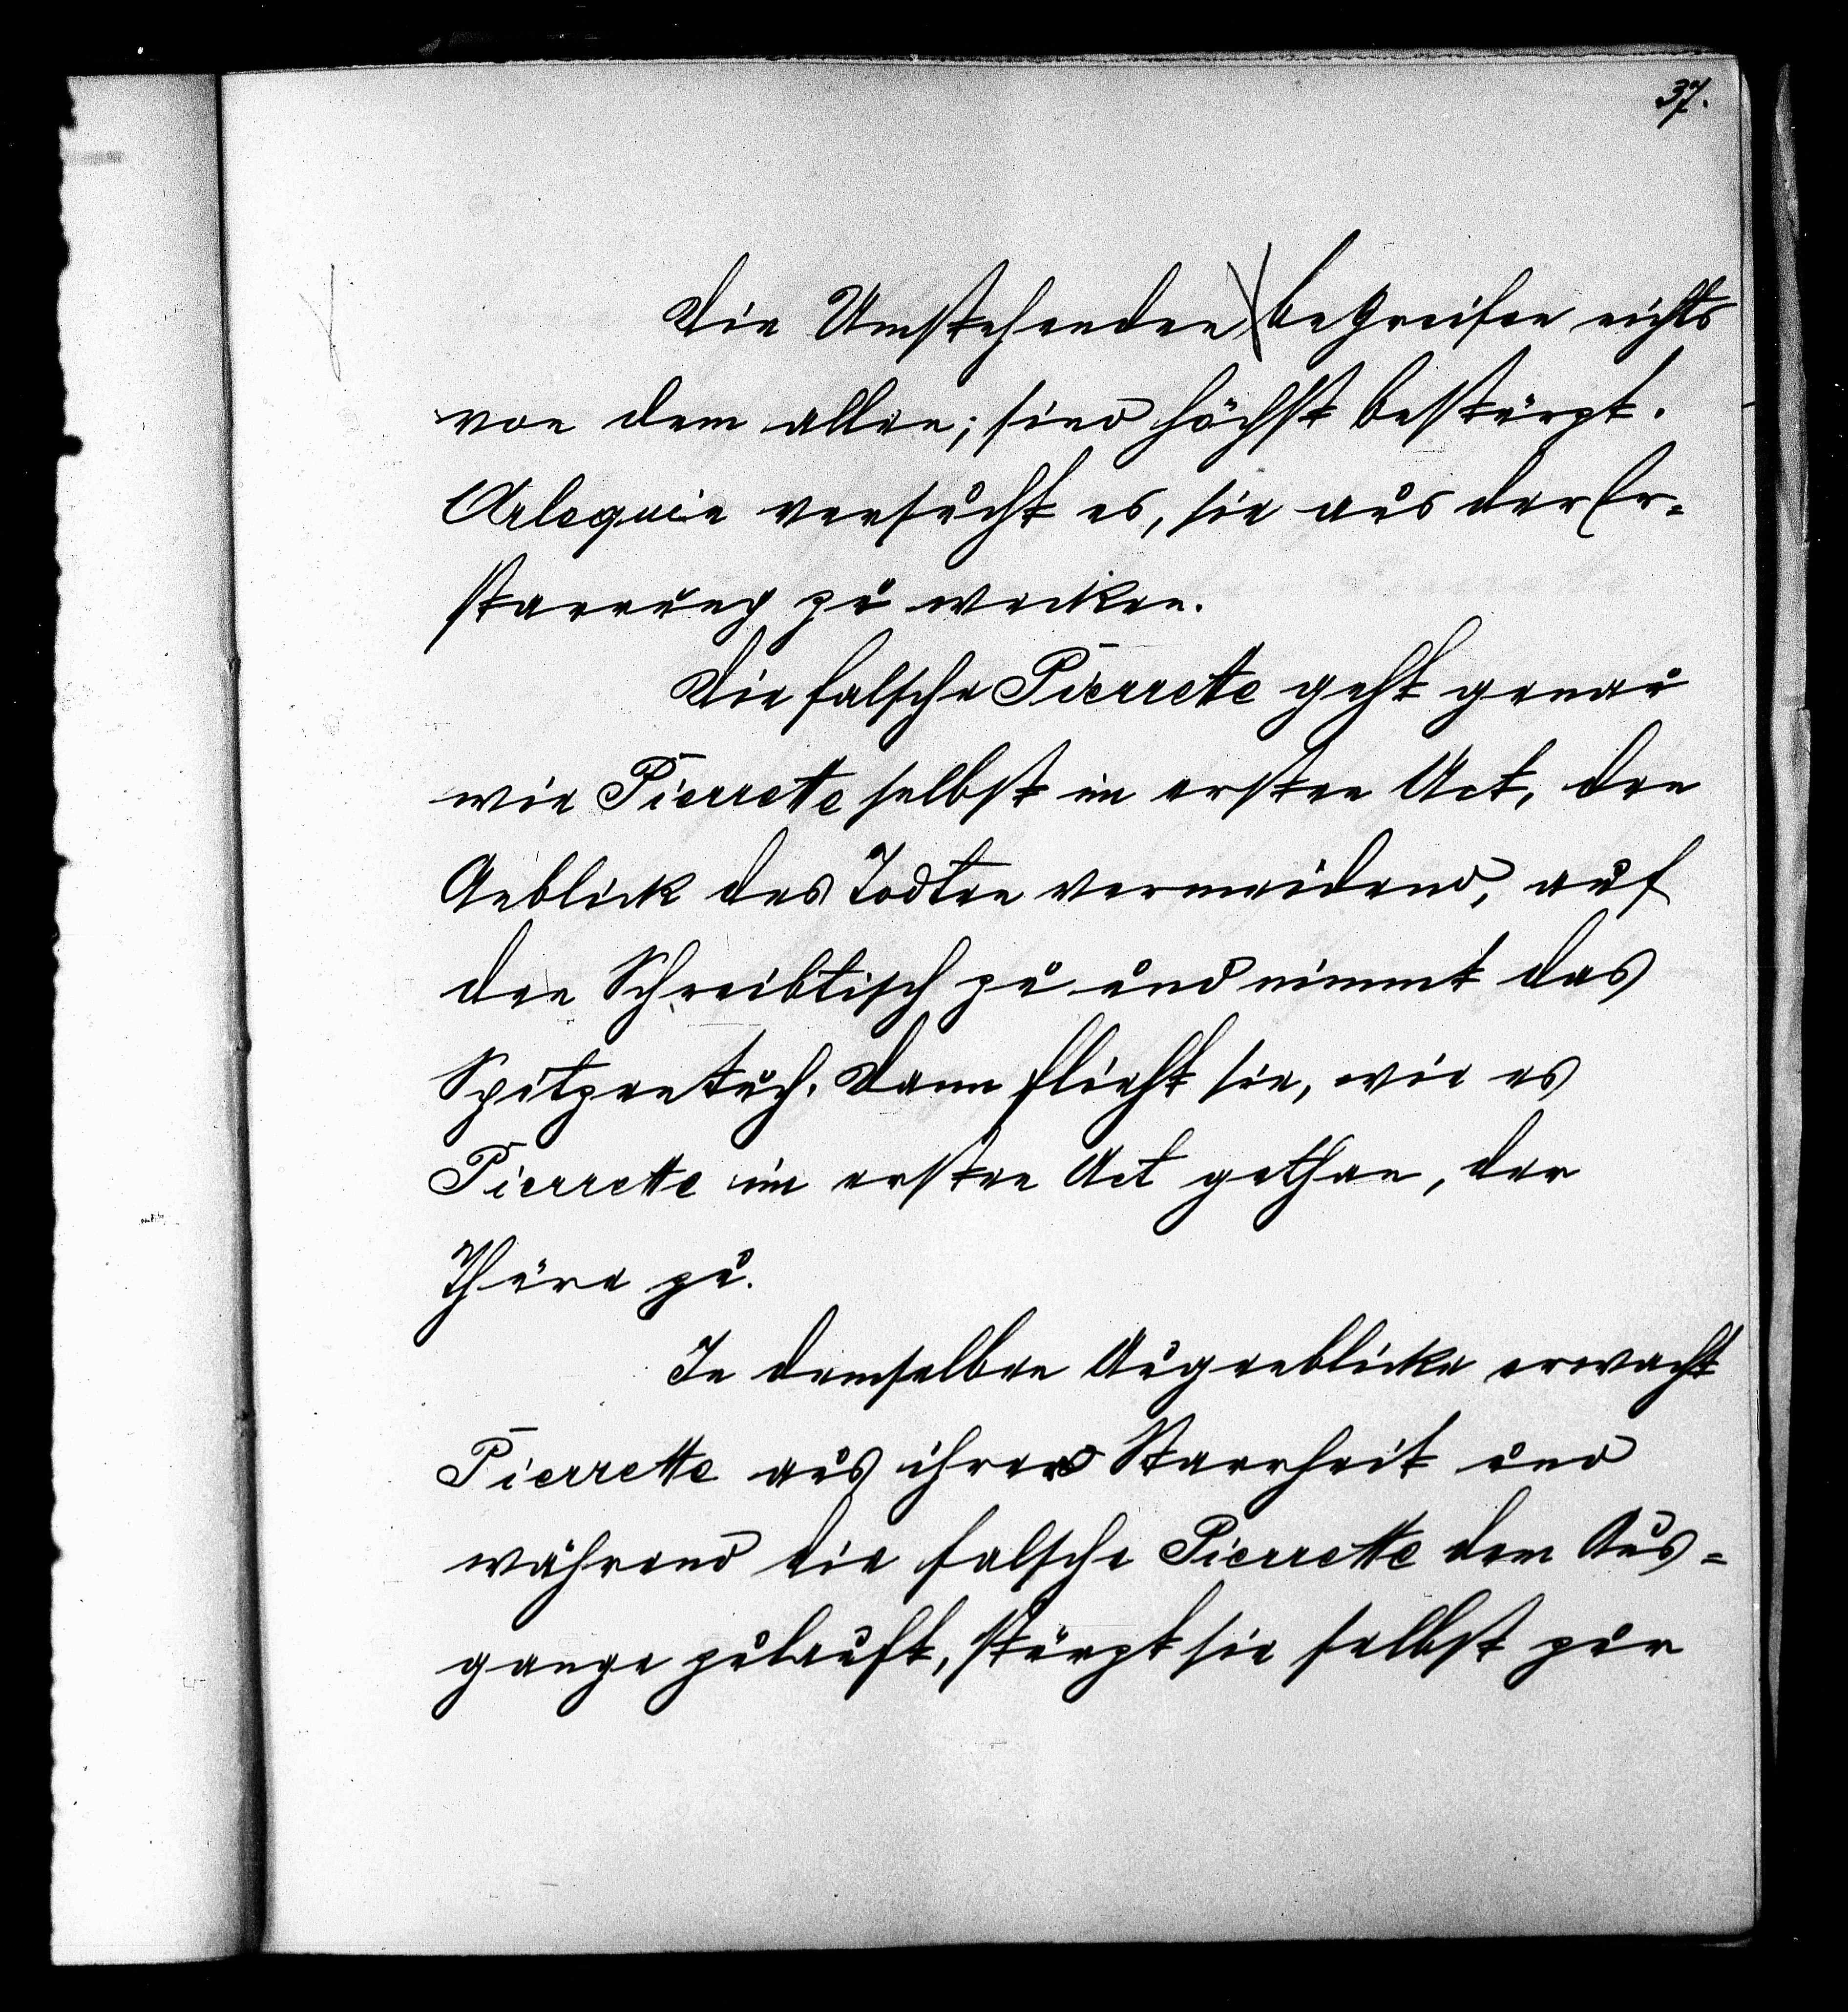 37.
Die Umstehenden begreifen nichts
von dem allen; sind höchst bestürzt.
Arlequin versucht es, sie aus der Er-
starrung zu wecken.
Die falsche Pierrette geht genau
wie Pierrette selbst im ersten Act, den
Anblick des Todten vermeidend, auf
den Schreibtisch zu und nimmt das
Spitzentuch. Dann flieht sie, wie es
Pierrette im ersten Act gethan, der
Thüre zu.
In demselben Augenblicke erwacht
Pierrette aus ihrer Starrheit und
während die falsche Pierrette dem Aus-
gange zulauft, stürzt sie selbst zur